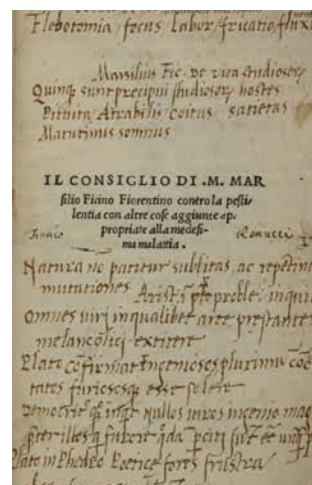 Flebotomia, focus, Labor, fricatio, fluxu
Marsilius Fic. De vita studiosor
Quinq sunt precipui studiosor hostes
Pituita, Atrabilis coitus satietas
Matutinus somnus
IL CONSIGLIO DI .M. MAR
silio Ficino Fiorentino contro la pesti-
lentia con altre cose aggiunte ap-
propriate alla medesi-
ma malattia .
Natura no patitur subbitas ac repetin
mutationes
Arist. proble. inqui
Omnes viri in qualibet arte prestante
melancolici extitere
Plato cõfirmat Ingeniosos plurimu cõc
tatos furiososq esse solere
Democrit nullos viros ingenio mag
furore
Plato in Phedro Poetice fores frustra